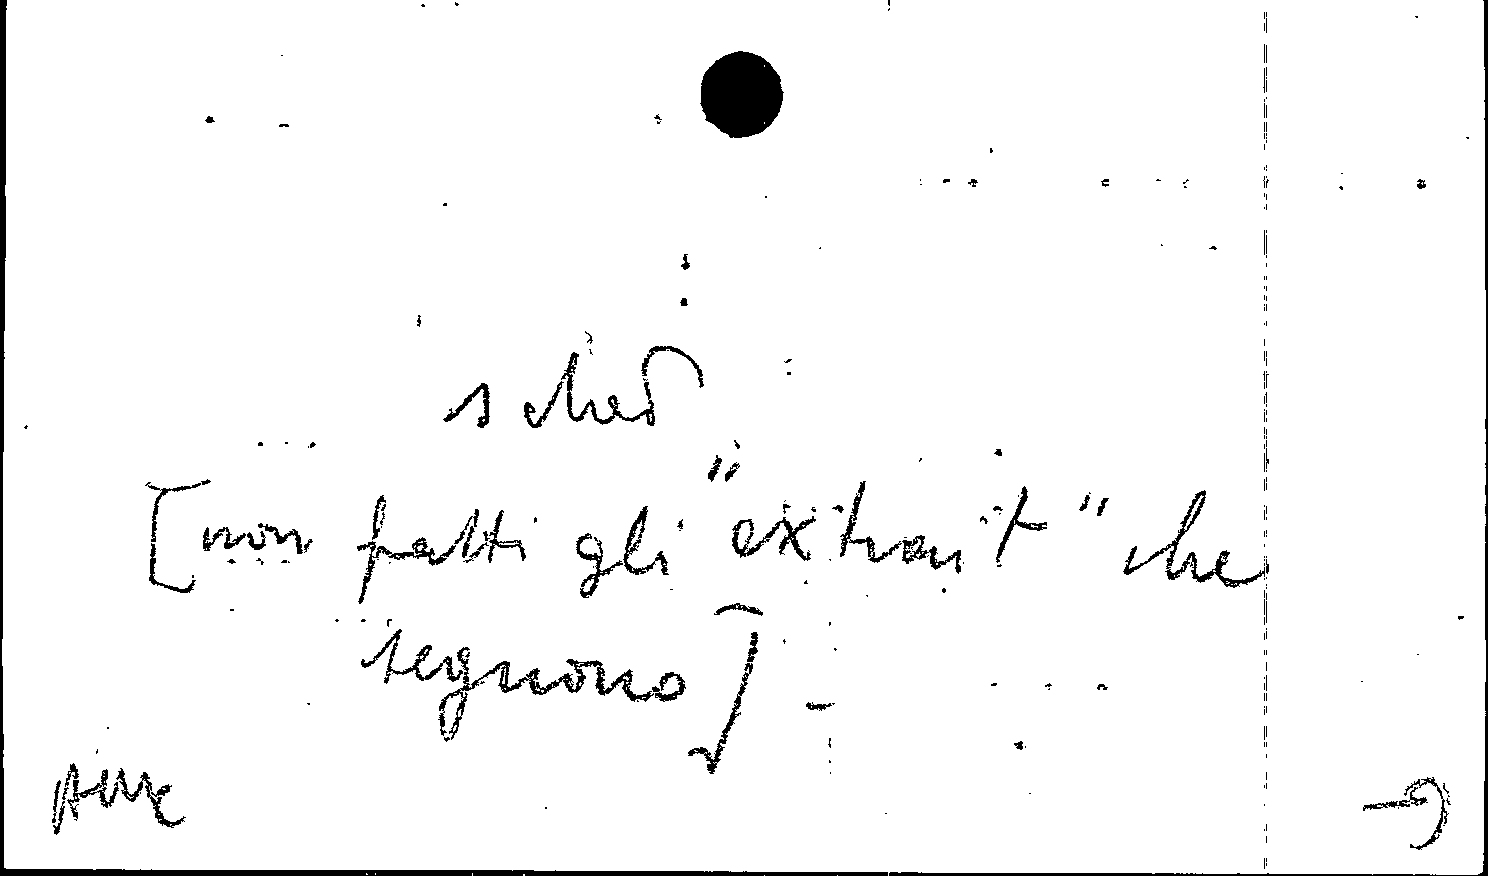 sched
[non fatti gli "extrait" che
segnono] -